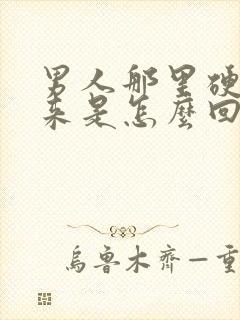 男人那里硬
来是怎麼回
烏魯木齊一重